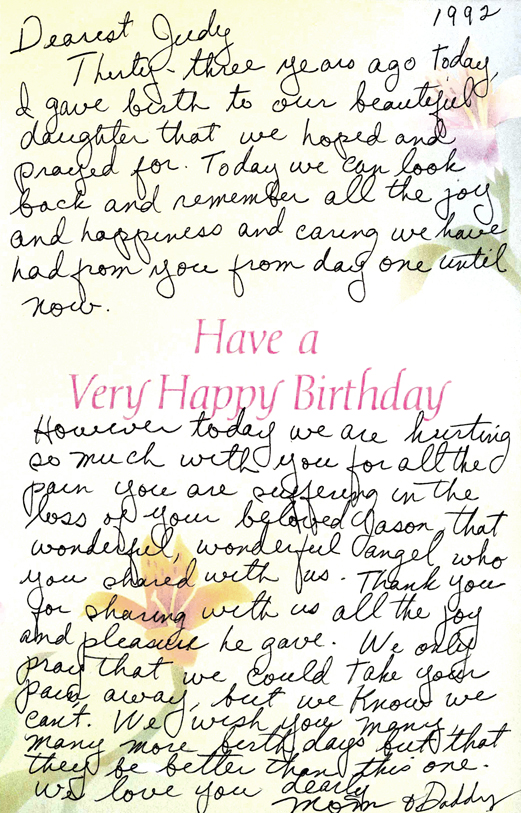 1992
Dearest Judy
Thirty-three years ago today,
I gave birth to our beautiful
daughter that we hoped and
prayed for. Today we can look
back and remember all the joy
and happiness and caring we have
had from you from day one until
now.
Have a
Very Happy Birthday
However today we are hurting
so much with you for all the
pain you are suffering in the
loss of your beloved Jason, that
wonderful, wonderful angel who
you shared with us. Thank you
for sharing with us all the joy
and pleasure he gave. We only
pray that we could take your
pain away, but we know we
can't. We wish you many,
many more birthdays but that
they be better than this one.
We love you dearly
Mom & Daddy